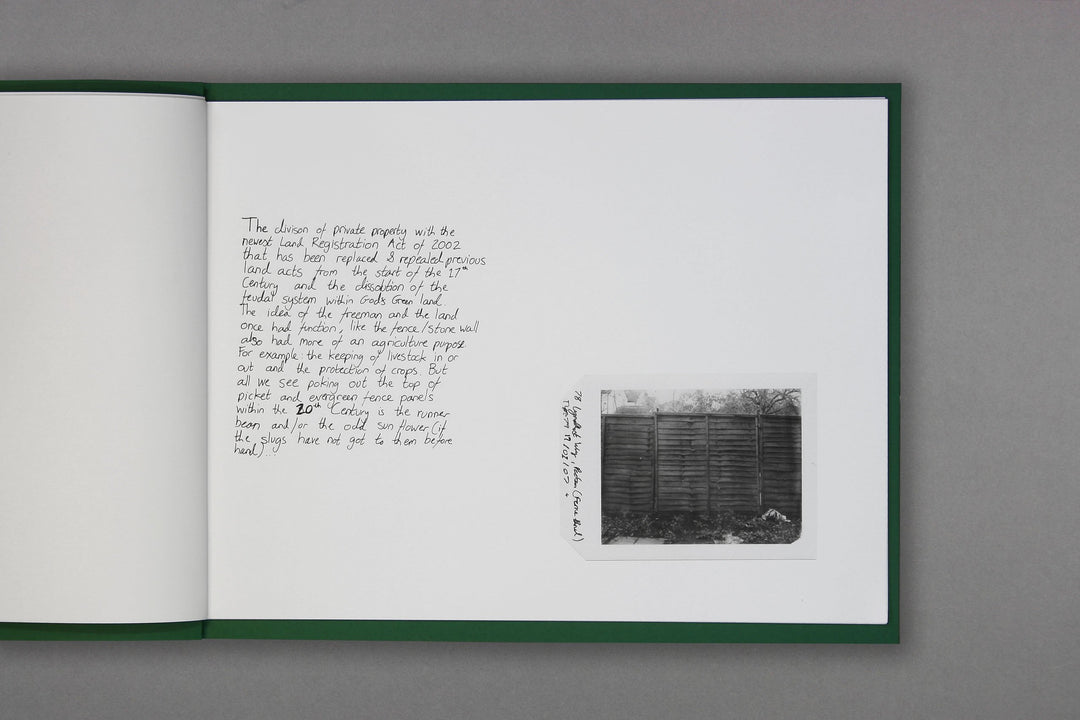 The divison of private property with the
newest Land Registration Act of 2002
that has been replaced & repealed previous
land acts from the start of the 17th
Century and the dissolution of the
feudal system within God's Green land.
The idea of the freeman and the land
once had function, like the fence/stone wall
also had more of an agriculture purpose.
For example: the keeping of livestock in or
out and the protection of crops. But
all we see poking out the top of
picket and evergreen fence panels
within the 20th Century is the runner
bean and/or the odd sun flower (if
the slugs have not got to them before
hand)...
78 Way, (Fence
19/01/07.